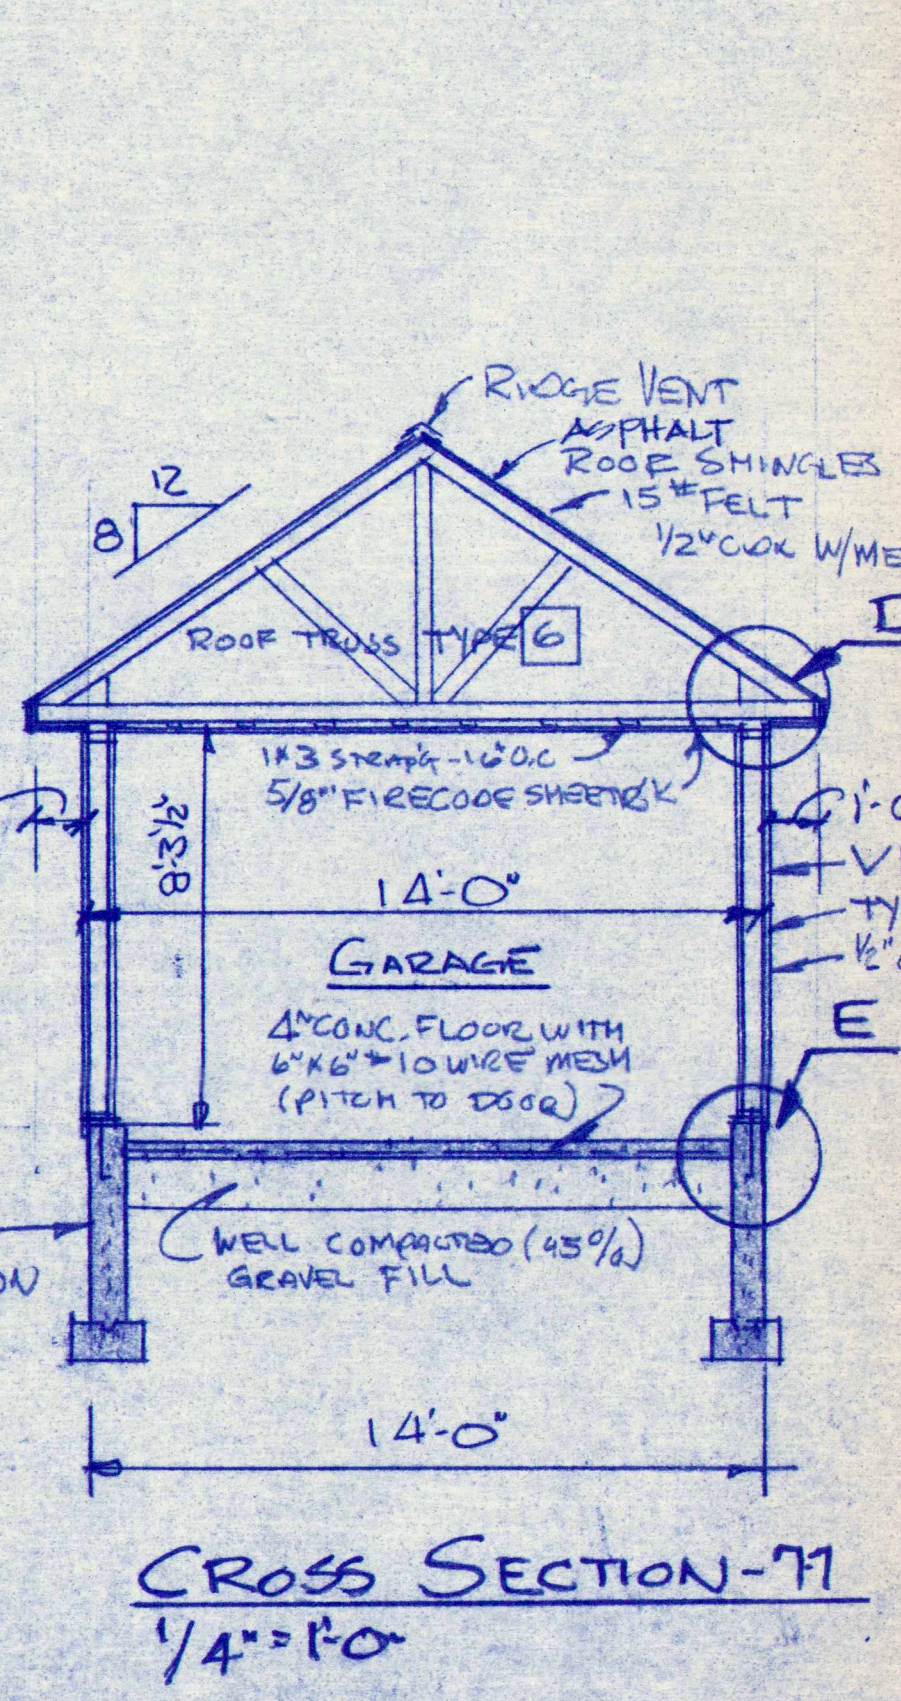 RIDGE VENT
ASPHALT
ROOF SHINGLES
15# FELT
1/2" CDX W/ME
12
8
D
ROOF TRUSS TYPE 6
1x3 STRAP'G - 16" O.C
5/8" FIRECODE SHEETR'K
8'-3 1/2"
1'-0
14'-0"
TY
1/2"
GARAGE
E
4" CONC. FLOOR WITH
6" x 6" #10 WIRE MESH
(PITCH TO DOOR)
WELL COMPACTED (95%)
GRAVEL FILL
ON
14'-0"
CROSS SECTION-7-7
1/4" = 1'-0"